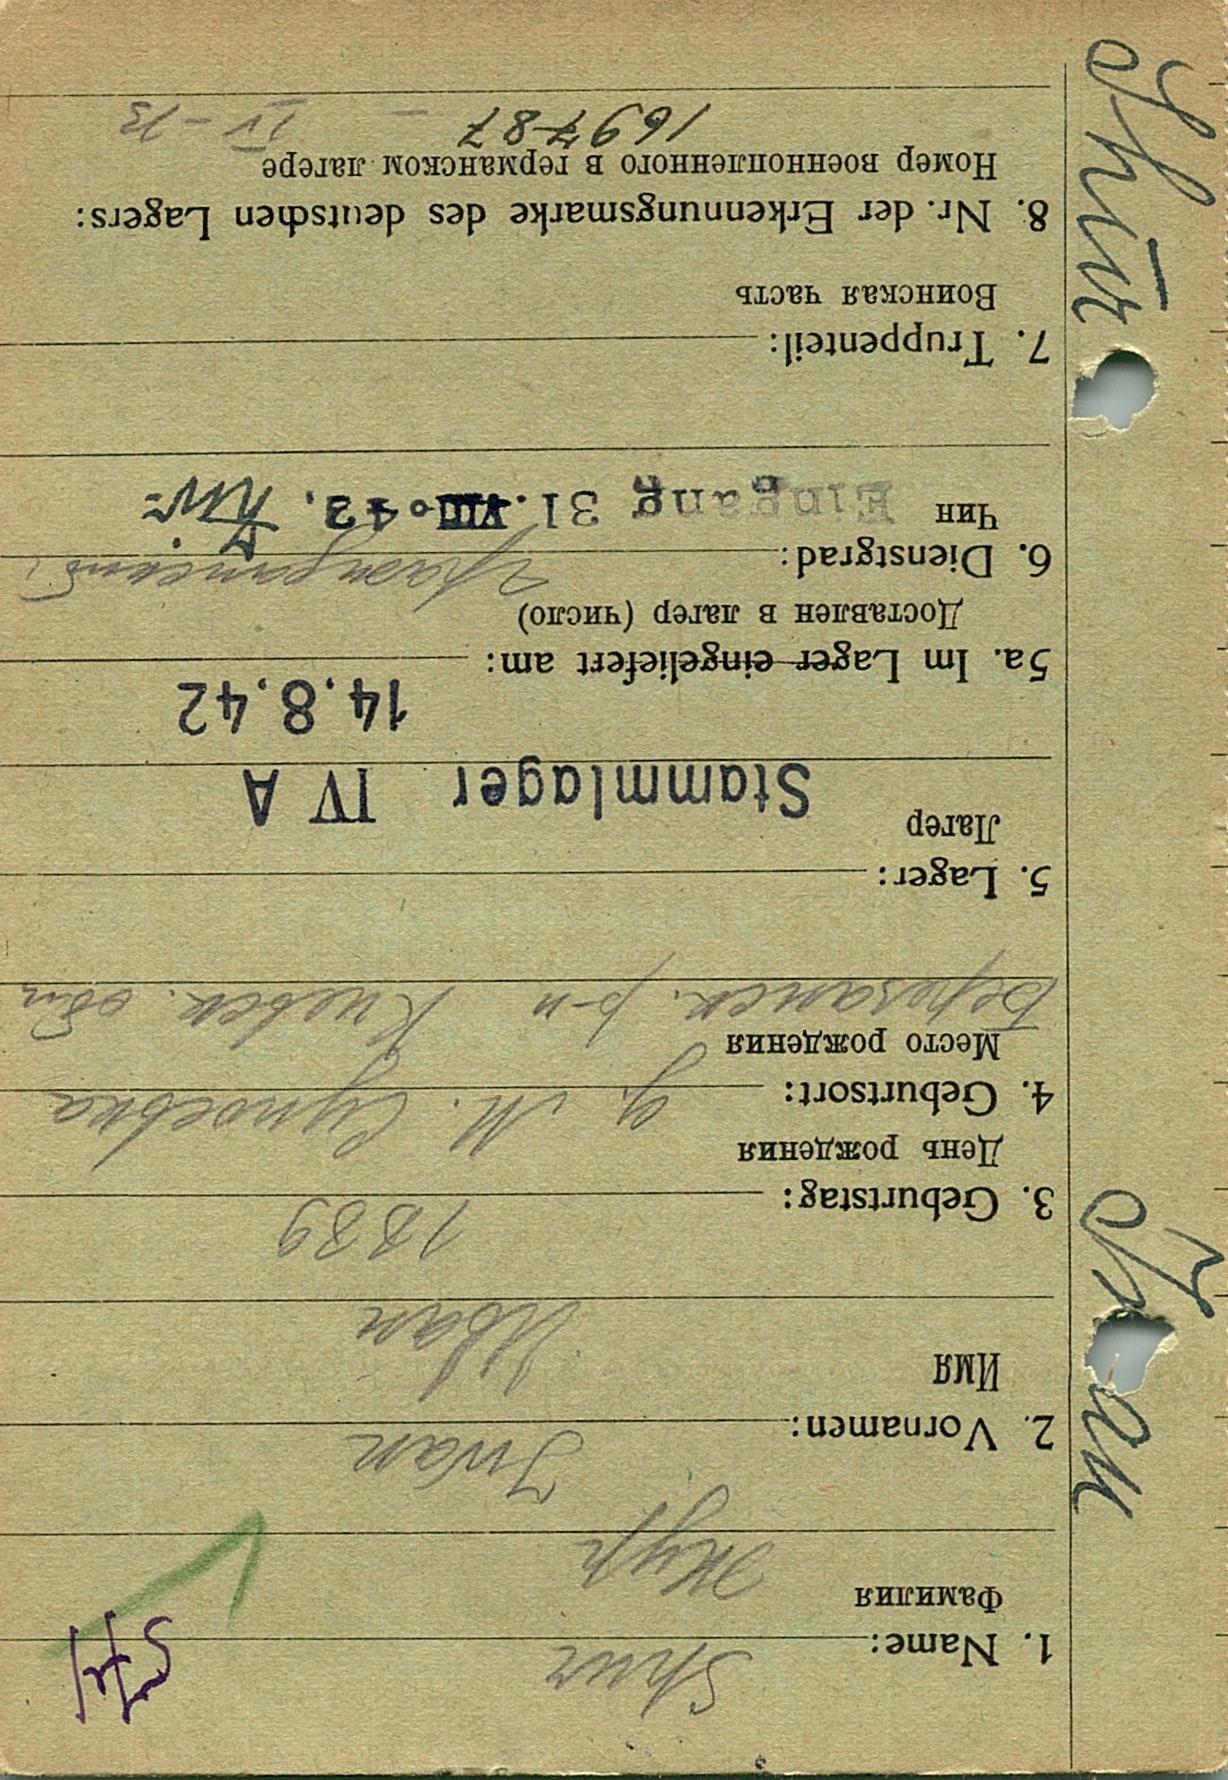 Shur
1. Name:
Фамилия
Жур
Iwan
2. Vornamen:
Имя
Иван
1889
3. Geburtstag:
День рождения
4. Geburtsort: д. М. Супоевка
Место рождения
Березанск. р-н Киевск. обл
5. Lager:
Лагер
Stammlager IV A
14.8.42
5a. Im Lager eingeliefert am:
Доставлен в лагер (число)
6. Dienstgrad: Гражданский
Чин Eingang 31. VIII. 43.
7. Truppenteil:
Воинская часть
8. Nr. der Erkennungsmarke des deutschen Lagers:
Номер военнопленного в германском лагере
169787 — IV-B
Shur
Iwan